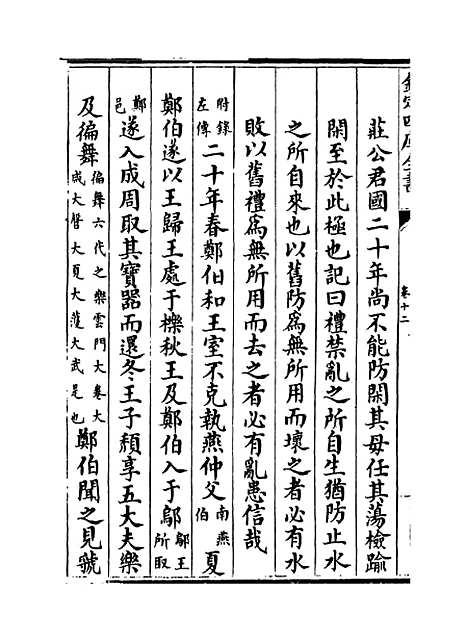 欽定四庫全書
卷十二
莊公君國二十年尚不能防閑其母任其蕩檢踰
閑至於此極也記曰禮禁亂之所自生猶防止水
之所自來也以舊防為無所用而壞之者必有水
敗以舊禮為無所用而去之者必有亂患信哉
附錄左傳二十年春鄭伯和王室不克執燕仲父南燕伯夏
鄭伯遂以王歸王處于櫟秋王及鄭伯入于鄔鄔王所取
鄭邑遂入成周取其寶器而還冬王子頽享五大夫樂
及徧舞徧舞六代之樂雲門大卷大咸大㲈大夏大濩大武是也鄭伯聞之見虢